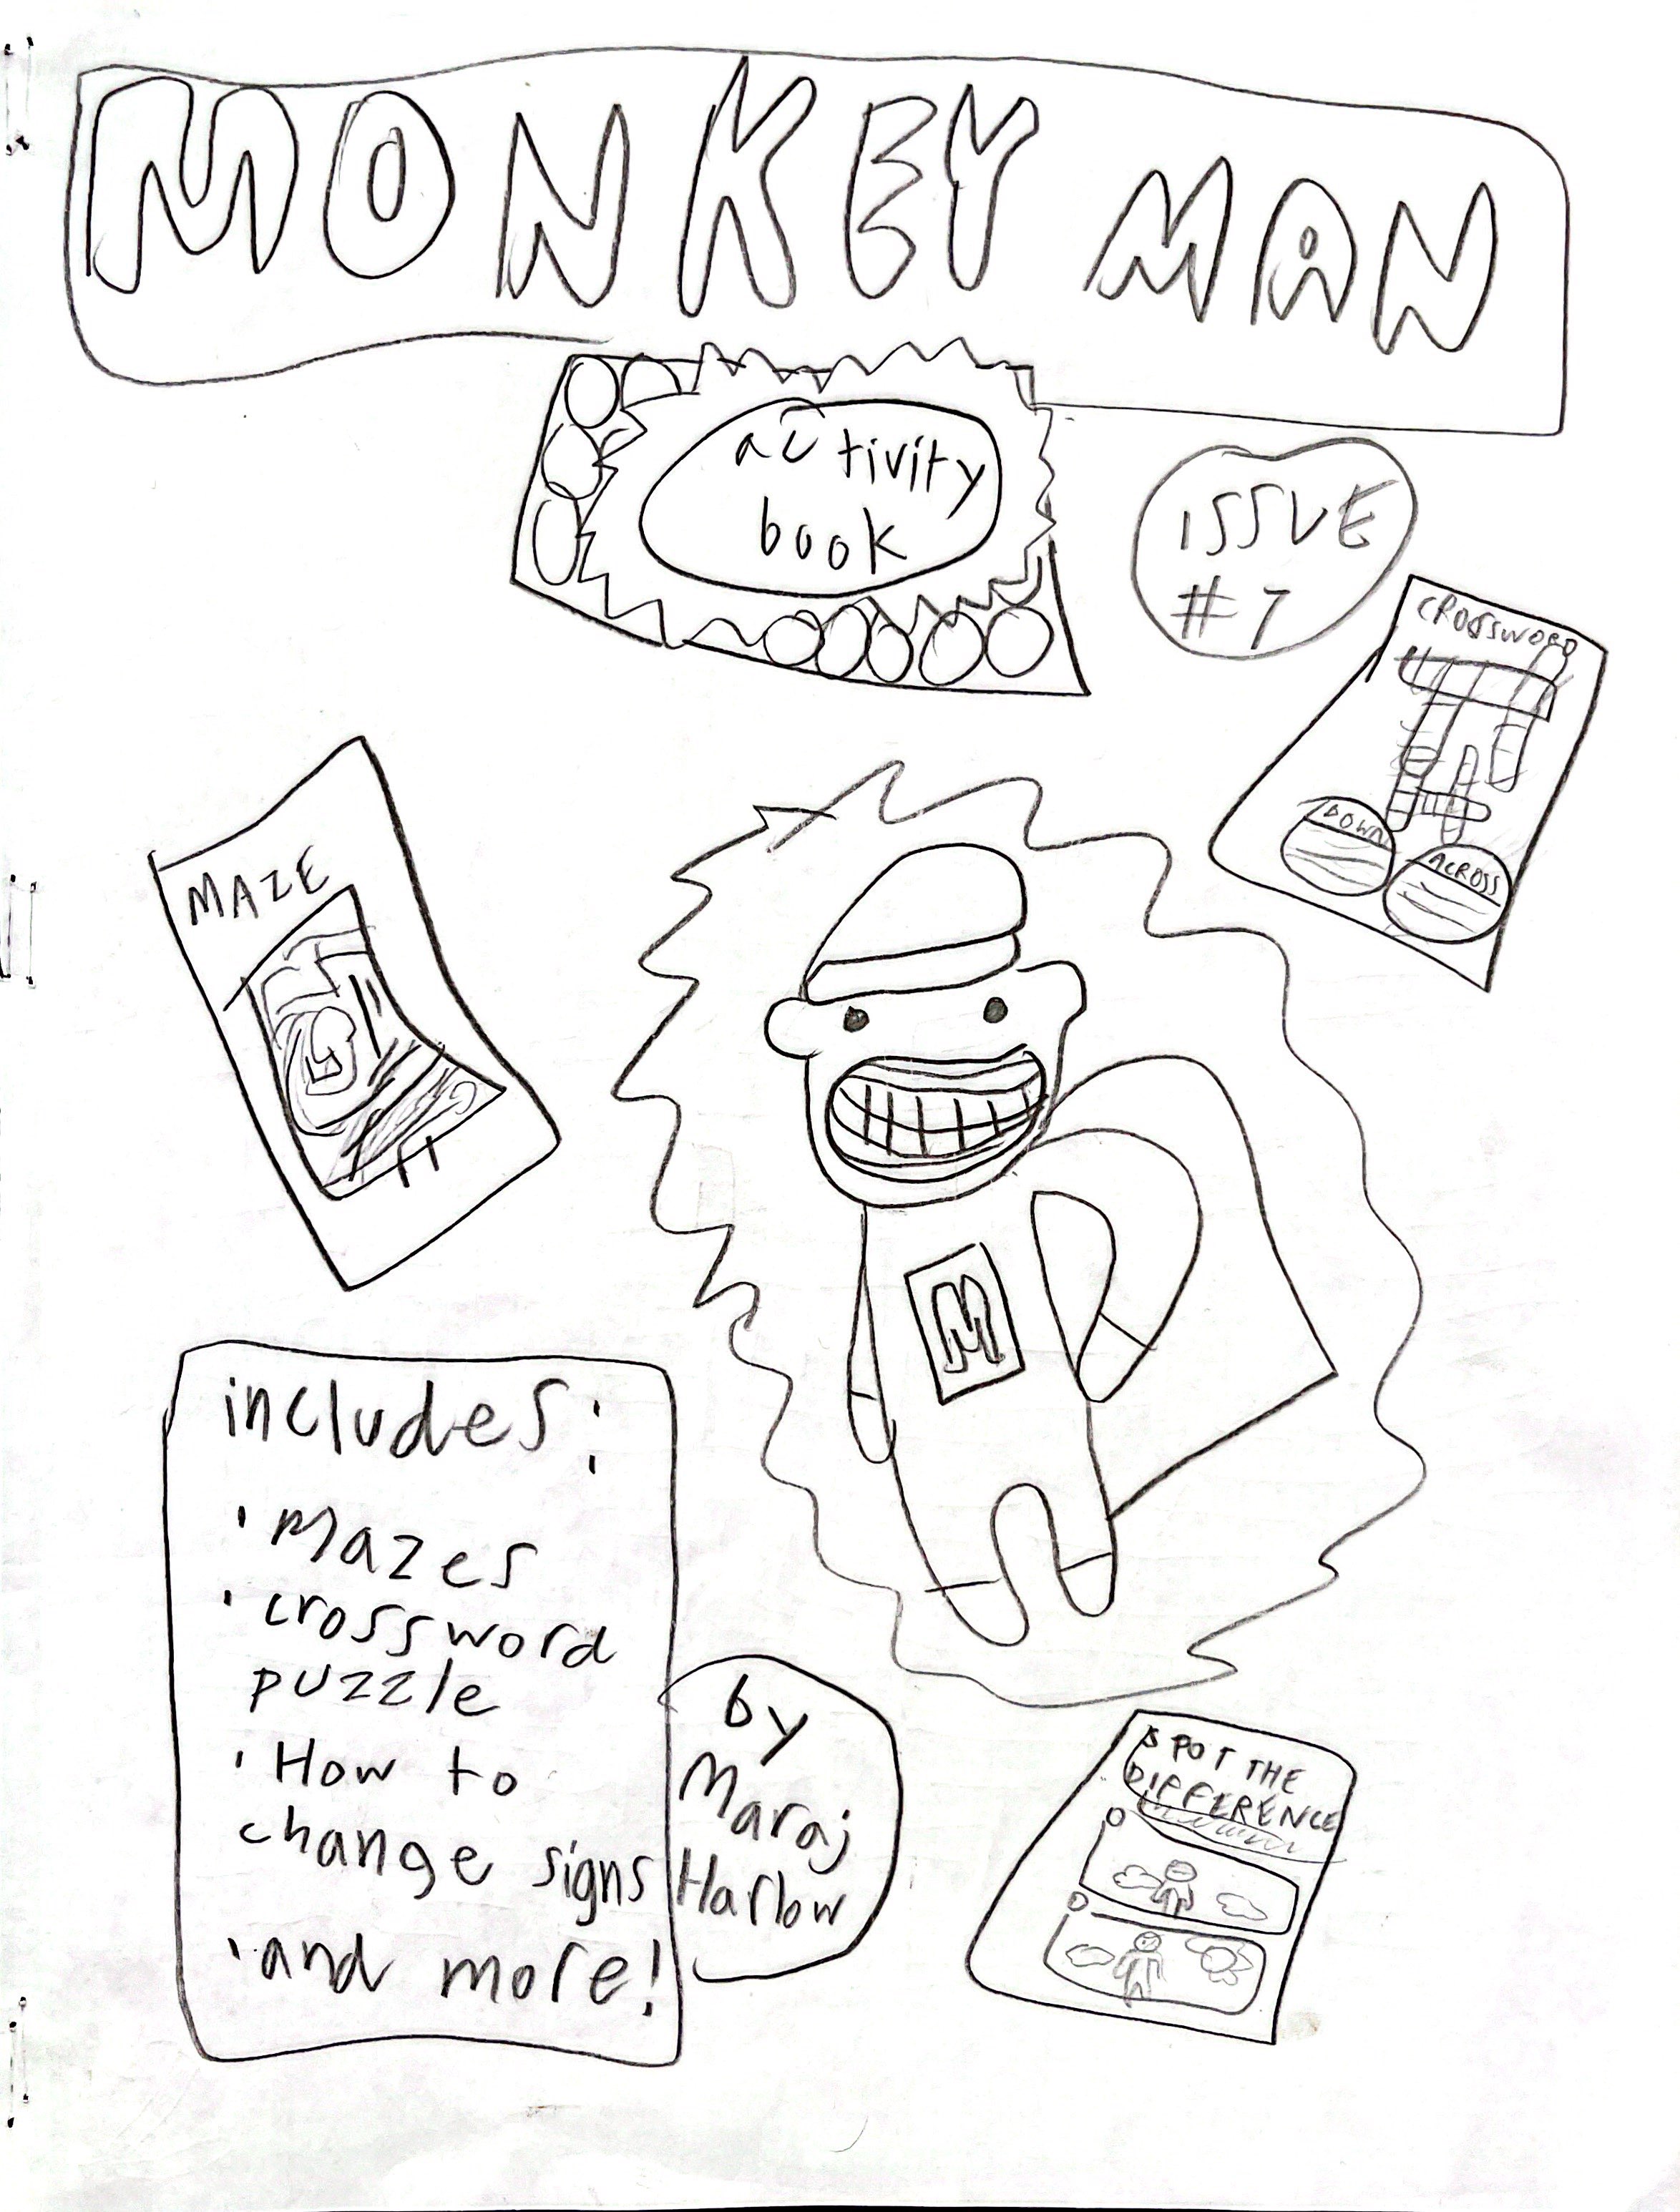 MONKEY MAN
activity
book
ISSUE
#7
CROSSWORD
DOWN
ACROSS
MAZE
M
includes:
• Mazes
• crossword
puzzle
• How to
change signs
• and more!
by
Maraj
Harlow
SPOT THE
DIFFERENCE